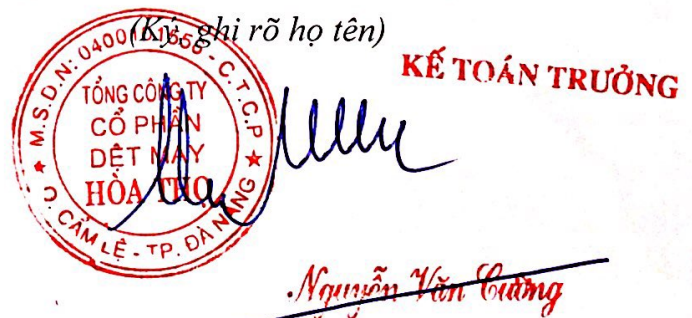 (Ký, ghi rõ họ tên)
KẾ TOÁN TRƯỞNG
M.S.D.N: 0400101556 - C.T.C.P
TỔNG CÔNG TY
CỔ PHẦN
DỆT MAY
HÒA THỌ
Q. CẨM LỆ - TP. ĐÀ NẴNG
Nguyễn Văn Cường